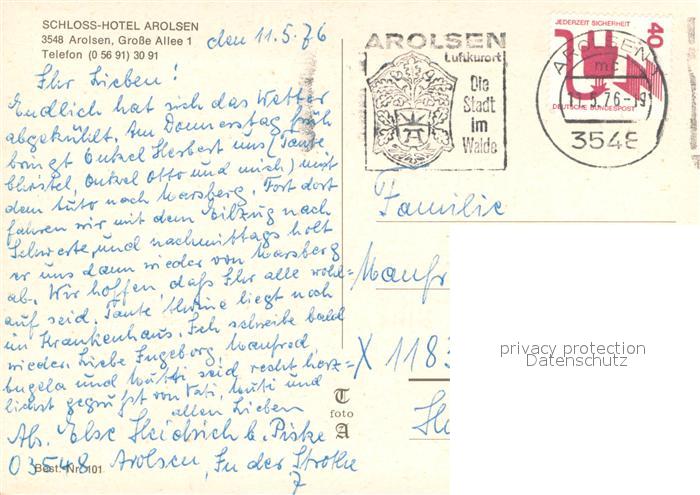 SCHLOSS-HOTEL AROLSEN
3548 Arolsen, Große Allee 1
Telefon (0 56 91) 30 91
den 11.5.76
Ihr Lieben!
Endlich hat sich das Wetter
abgekühlt. Am Donnerstag früh
bringt Onkel Herbert uns (Tante
Onkel Otto und mich) mit
dem Auto nach Marsberg. Fort dort
fahren wir mit dem Eilzug nach
Schwerte und nachmittags holt
er uns dann wieder von Marsberg
ab. Wir hoffen daß Ihr alle wohl-
auf seid. Tante liegt noch
im Krankenhaus. Ich schreibe bald
wieder. Liebe Ingeborg, Manfred
und Mutti seid recht herz=
lichst gegrüßt von Vati, Mutti und
allen Lieben
Abs. Else Heidrich b. Piske
03548 Arolsen, In der Strothe
7
Best. Nr. 101
T
foto
A
AROLSEN
Luftkurort
Die
Stadt
im
Walde
JEDERZEIT SICHERHEIT
40
DEUTSCHE BUNDESPOST
AROLSEN 1
mc
5.76-19
3548
Familie
Manfr
X 118
privacy protection
Datenschutz